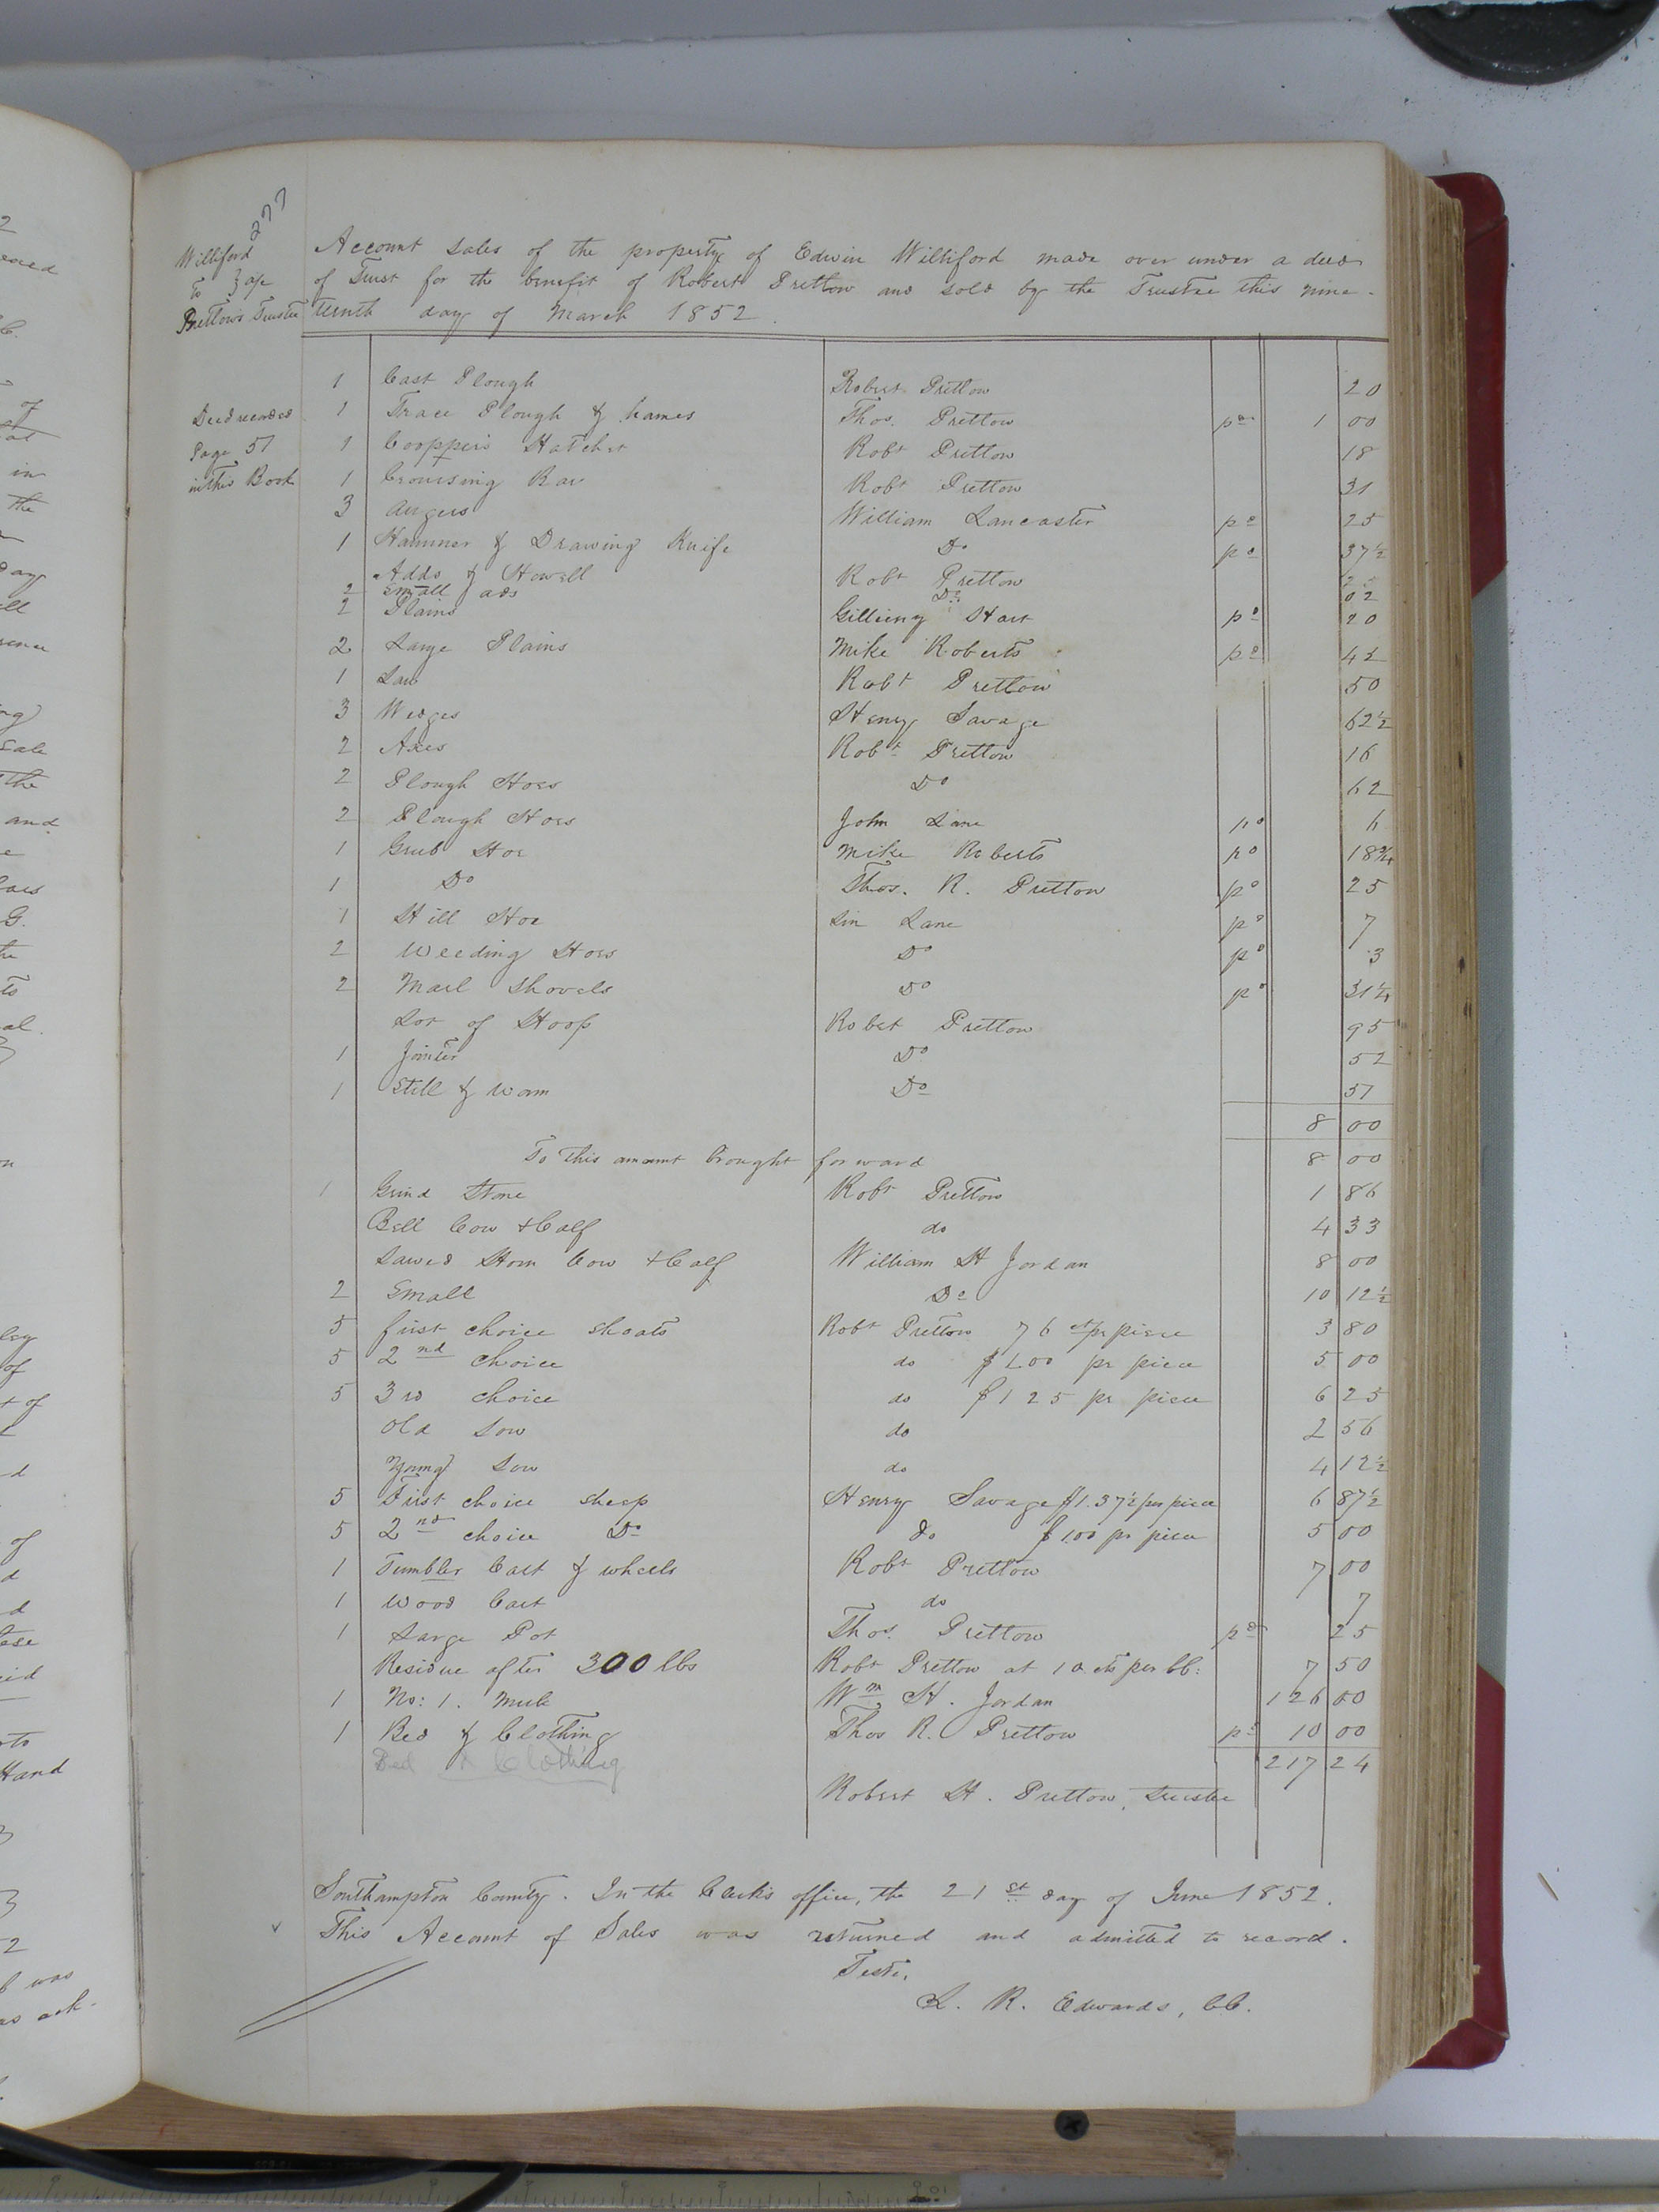 277
Williford
to } a/c
Pretlow's Trustee
Account Sales of the property of Edwin Williford made over under a deed
of Trust for the benefit of Robert Pretlow and sold by the Trustee this nine-
teenth day of March 1852.
Deed recorded
Page 57
in this Book
1 Cast Plough Robert Pretlow 20
1 Trace Plough & hames Thos. Pretlow pd 1 00
1 Cooppers Hatchet Robt Pretlow 18
1 Crowsing Bar Robt Pretlow 31
3 Augers William Lancaster pd 25
1 Hammer & Drawing Knife Do pd 37½
Adds & Howell Robt Pretlow 25
2 Small ads Do 02
2 Plains Hart pd 20
2 Large Plains Mike Roberts pd 42
1 Saw Robt Pretlow 50
3 Wedges Henry Savage 62½
2 Axes Robt Pretlow 16
2 Plough Hoes Do 62
2 Plough Hoes John Lane pd 6
1 Grub Hoe Mike Roberts pd 18¾
1 Do Thos. R. Pretlow pd 25
1 Hill Hoe Lin Lane pd 7
2 Weeding Hoes Do pd 3
2 Marl Shovels Do pd 31¼
Lot of Hoops Robet Pretlow 95
1 Jointer Do 52
1 Still & Worm Do 51
8 00
To this amount brought forward 8 00
1 Grind Stone Robt Pretlow 1 86
Bell Cow & Calf do 4 33
Sawed Horn Cow & Calf William H Jordan 8 00
2 Small Do 10 12½
5 first choice shoats Robt Pretlow 76 cts pr piece 3 80
5 2nd choice do $1.00 pr piece 5 00
5 3rd choice do $1 25 pr piece 6 25
Old Sow do 2 56
Young Sow do 4 12½
5 First choice sheep Henry Savage $1.37½ per piece 6 87½
5 2nd choice Do do $1.00 pr piece 5 00
1 Tumbler Cart & wheels Robt Pretlow 7 00
1 Wood Cart do 7
1 Large Pot Thos. Pretlow pd 25
Residue after 300 lbs Robt Pretlow at 10 cts per bb: 7 50
1 No: 1. Mule Wm H. Jordan 126 00
1 Bed & Clothing Thos R. Pretlow pd 10 00
Bed & Clothing 217 24
Robert H. Pretlow, Trustee
Southampton County. In the Clerk's office, the 21st day of June 1852.
This Account of Sales was returned and admitted to record.
Teste,
L. R. Edwards, CC.